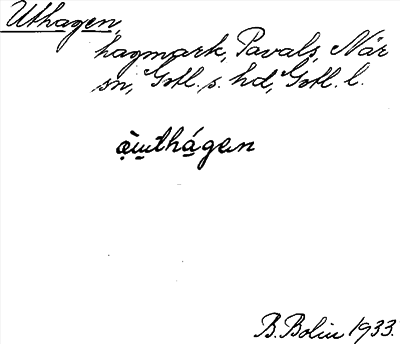 Uthagen,
hagmark, Pavals, När
sn, Gotl. s. hd, Gotl. l.
B. Bolin 1933.